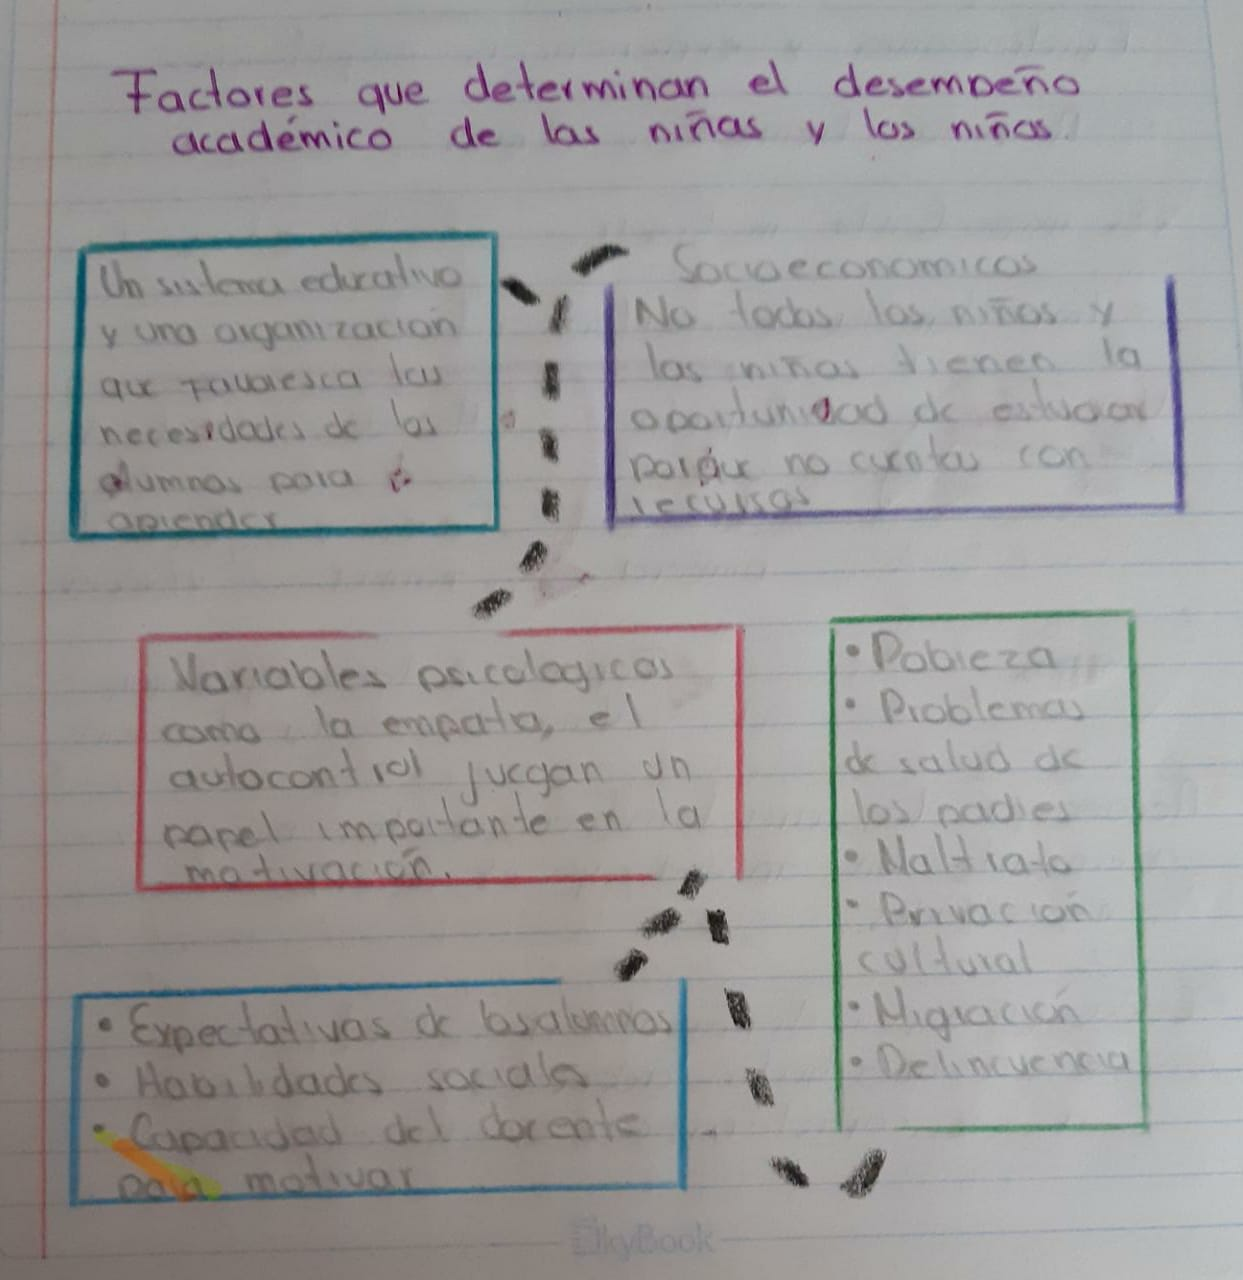 Factores que determinan el desempeño
académico de las niñas y los niños.
Un sistema educativo
y una organización
que favoresca las
necesidades de los
alumnos para
aprender
Socioeconomicos
No todos los niños y
las niñas tienen la
oportunidad de estudiar
porque no cuentas con
recursos
Variables psicologicas
como la empatia, el
autocontrol juegan un
papel importante en la
motivación.
• Pobreza
• Problemas
de salud de
los padres
• Maltrato
• Privación
cultural
• Migración
• Delincuencia
• Expectativas de los alumnos
• Habilidades sociales
• Capacidad del docente
para motivar
SkyBook